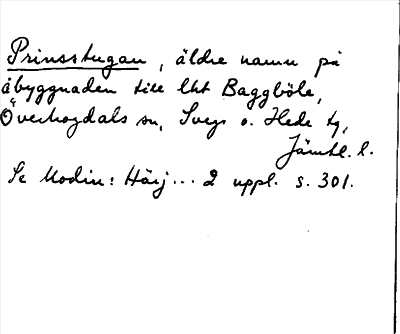 Prinsstugan, äldre namn på
åbyggnaden till lht Baggböle,
Överhogdals sn, Svegs o. Hede tg,
Jämtl. l.
Se Modin: Härj... 2 uppl. s. 301.